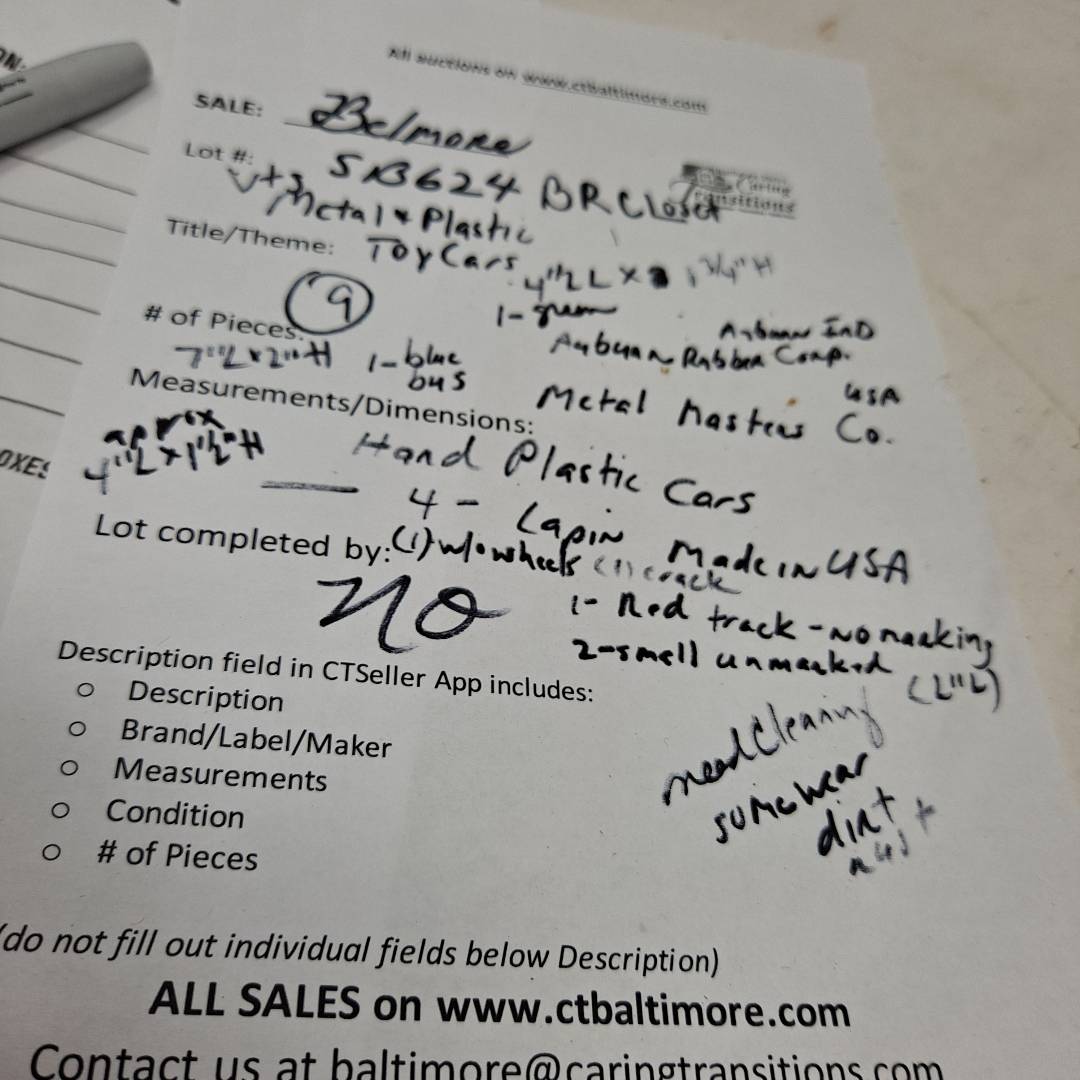 ON:
All auctions on www.ctbaltimore.com
SALE: Belmore
Lot #: SB624 BR Closet
Caring
Transitions
Vtg Metal + Plastic
Title/Theme: Toy Cars
4"L x 1 3/4" H
# of Pieces: 9
1- green
Auburn Rubber Corp. Auburn IND
USA
7"L x 2"H 1- blue
bus
Metal Masters Co.
Measurements/Dimensions:
aprox
4"L x 1½"H
Hard Plastic Cars
OXES
4 - Lapin Made in USA
Lot completed by: (1) w/o wheels (1) crack
NO
1- Red track - no marking
2- smell unmarked
(2"L)
Description field in CTSeller App includes:
o Description
o Brand/Label/Maker
o Measurements
o Condition
o # of Pieces
need Cleaning
some wear
dirt +
rust
(do not fill out individual fields below Description)
ALL SALES on www.ctbaltimore.com
Contact us at baltimore@caringtransitions.com